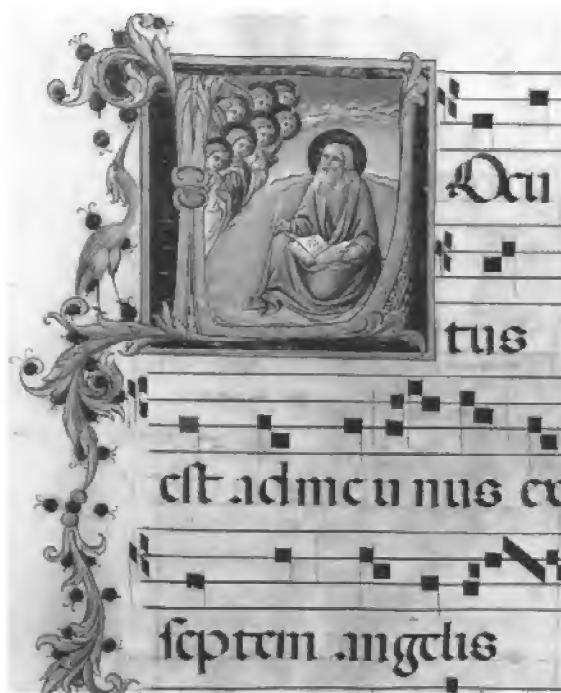 L
Ocu
tus
est ad me u nus ex
septem angelis